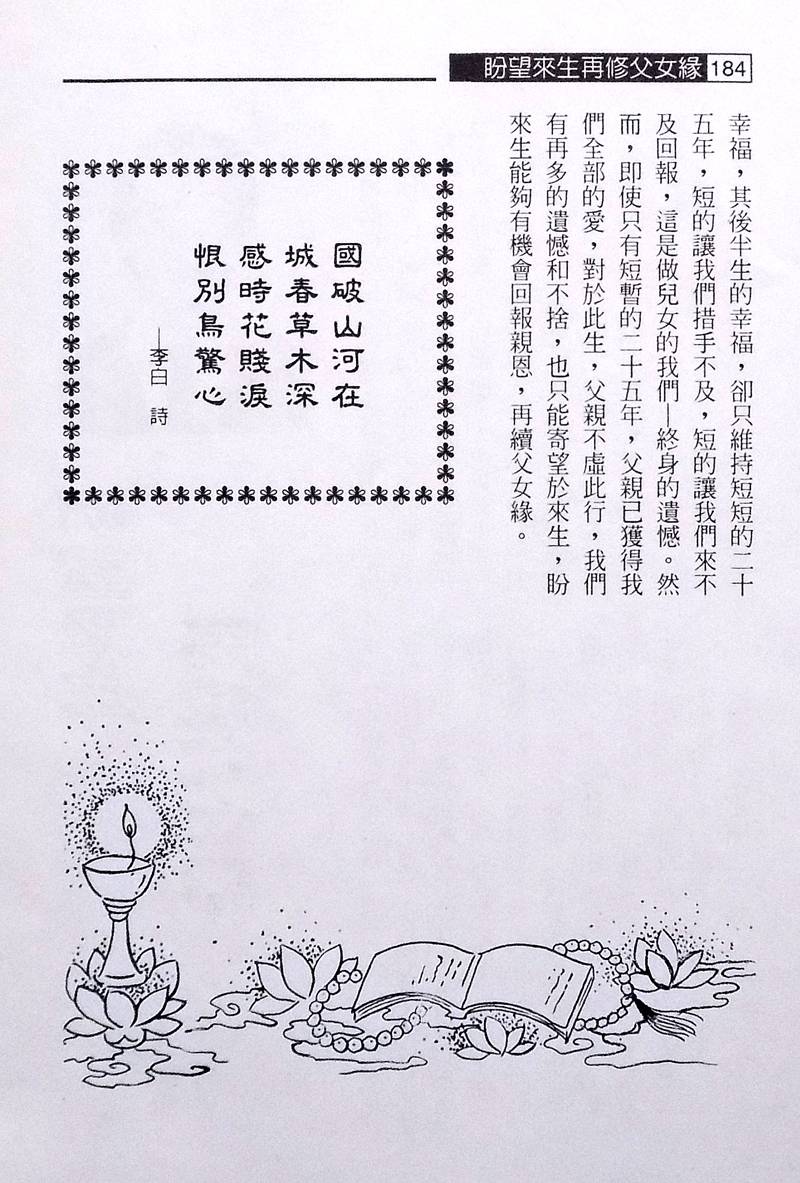 盼望來生再修父女緣 184
幸福，其後半生的幸福，卻只維持短短的二十
五年，短的讓我們措手不及，短的讓我們來不
及回報，這是做兒女的我們—終身的遺憾。然
而，即使只有短暫的二十五年，父親已獲得我
們全部的愛，對於此生，父親不虛此行，我們
有再多的遺憾和不捨，也只能寄望於來生，盼
來生能夠有機會回報親恩，再續父女緣。
國破山河在
城春草木深
感時花賤淚
恨別鳥驚心
—李白 詩